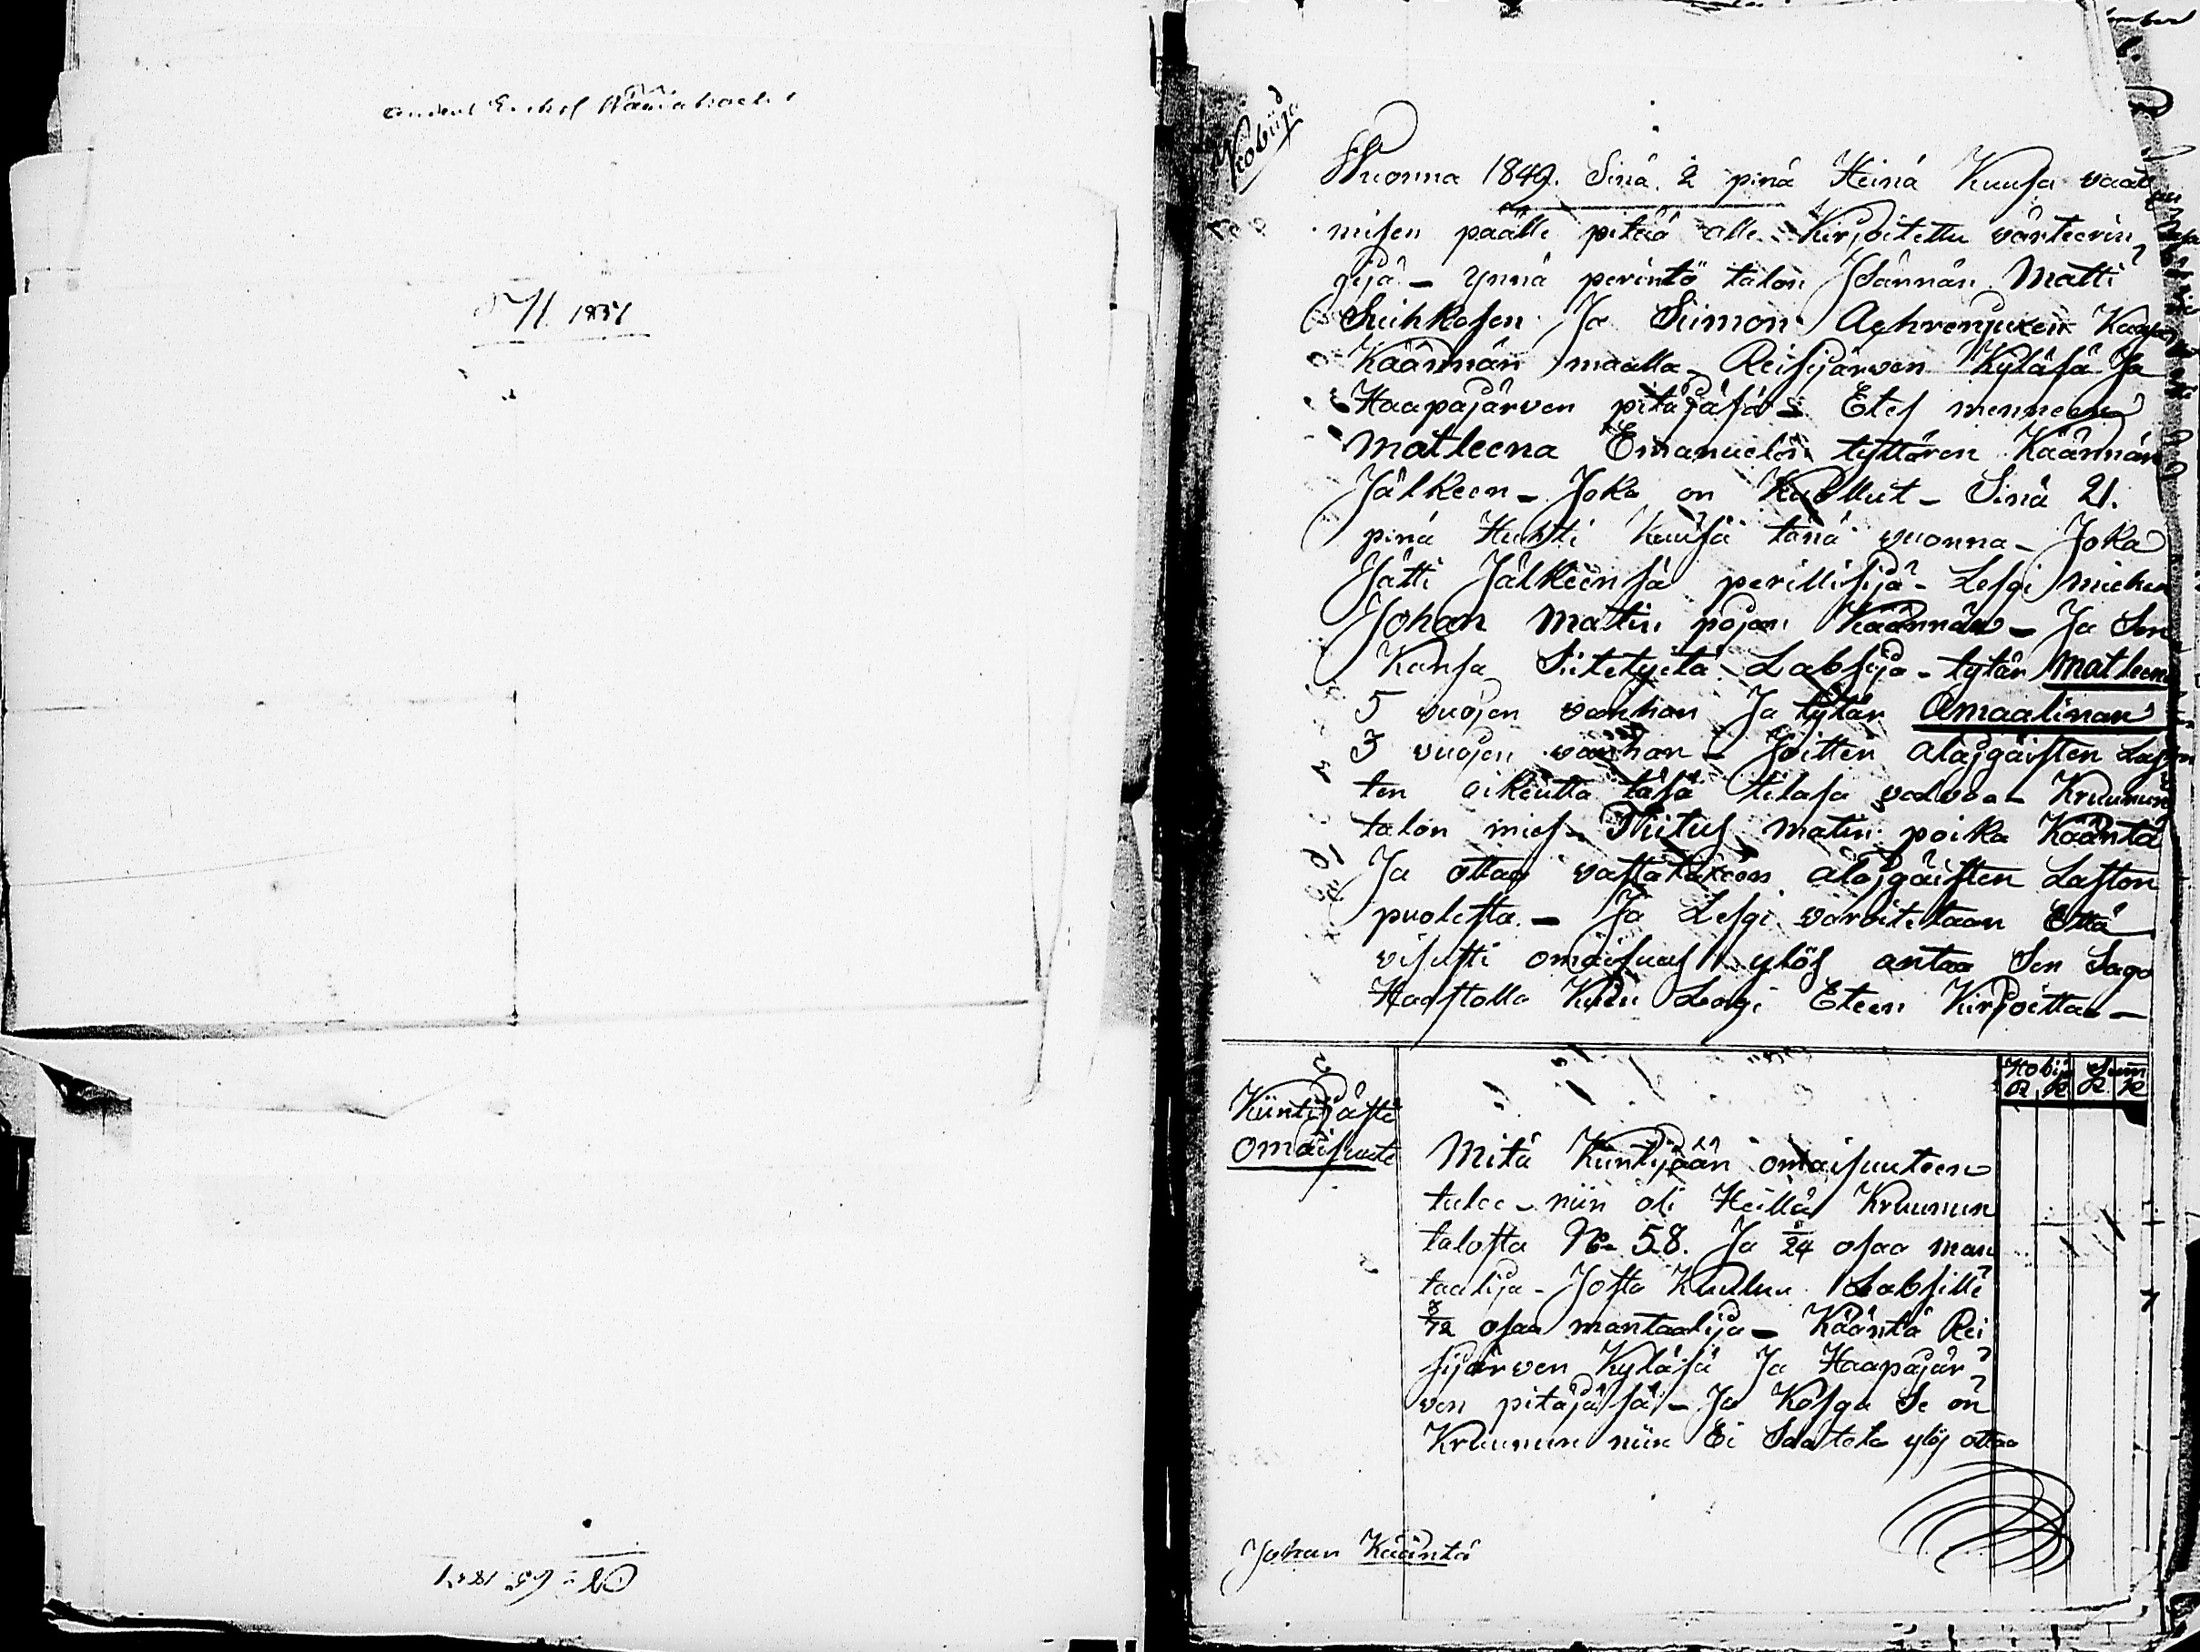 1851
Kobiija
Wuonna 1849. Sinä 2 pinä Heinä Kuusa vaati
misen päälle pitää alle Kirjoitettu värteerin
gijä – ynnä perintö talon Jsännän Matti
Suihkosen Ja Siimon
Käännän maalla – Reisijärven Kyläsä Ja
Haapajärven pitäjäsä – Etes menneen
Matleena Emanuelin tyttären Käännän
Jälkeen – Joka on Kuollut – Sinä 21.
pinä Huhti Kuusa tänä vuonna – Joka
Jätti Jälkeensä perillisijä – Lesgi miehen
Johan Matin pojan Käännän – Ja Sen
Kansa Siitetyitä Labsija – tytär Matleena
5 vuojen vanhan Ja tytär Amaalinan
3 vuojen vanhan – Joitten alajgäisten Las
ten oikeutta täsä tilasa valvoo – Kruunun
talon mies – Tiitus Matin poika Kääntä
Ja ottaa vastataxeen alajgäisten Lasten
puolesta. – Ja Lesgi varoitetaan Että
visusti omaisuus ylös antaa Sen Sago
Haastolla Kuin Lagi Eteen Kirjoittaa –
Kobij Sum
R K R K
Kiintijästä
omaisuute
Mitä Kiintijään omaisuuteen
tulee – niin oli Heillä Kruunun
talosta No 58. Ja 5/24 osaa man
taalija – Josta Kuuluu Labsille
8/72 osaa mantaalija – Kääntä Rei
sijärven Kyläsä Ja Haapajär
ven pitäjäsä – Ja Kosga Se on
Kruunun niin Ei Saateta ylös ottaa
Johan Kääntä